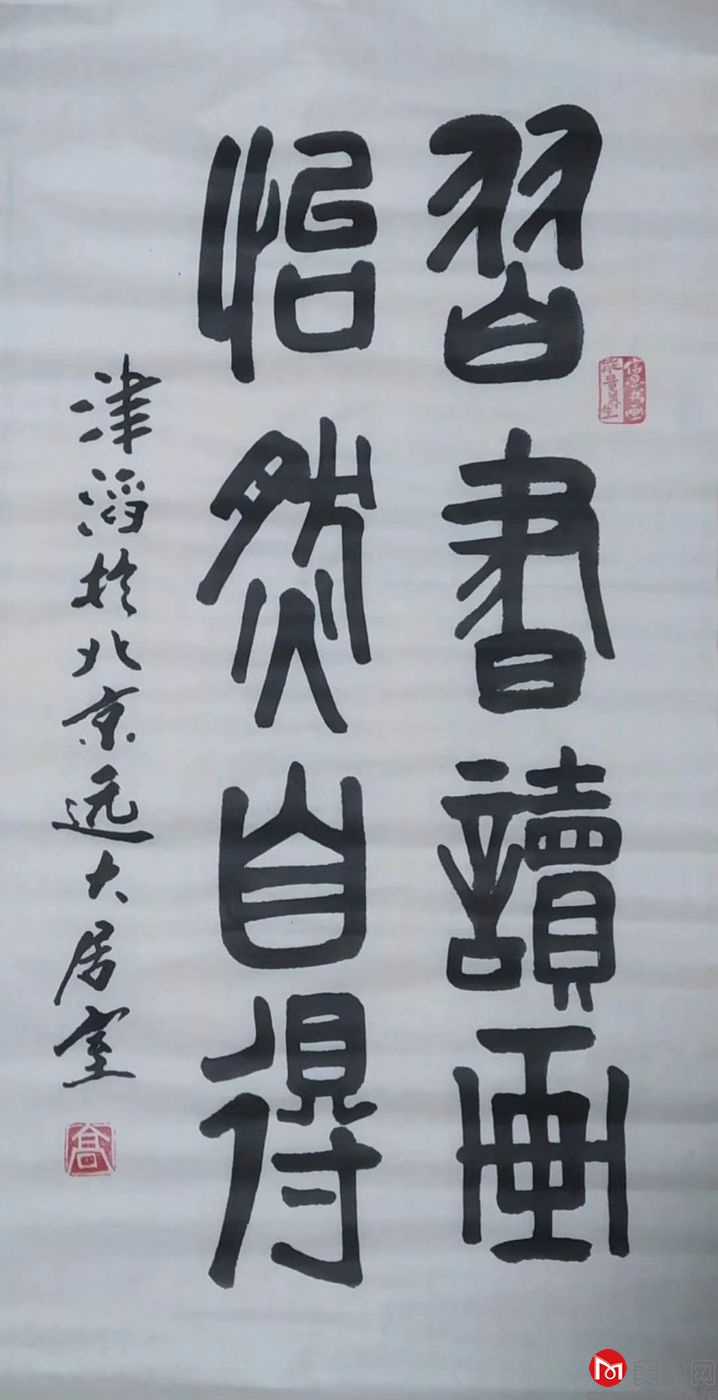 習書讀畫
怡然自得
津滔於北京远大居室